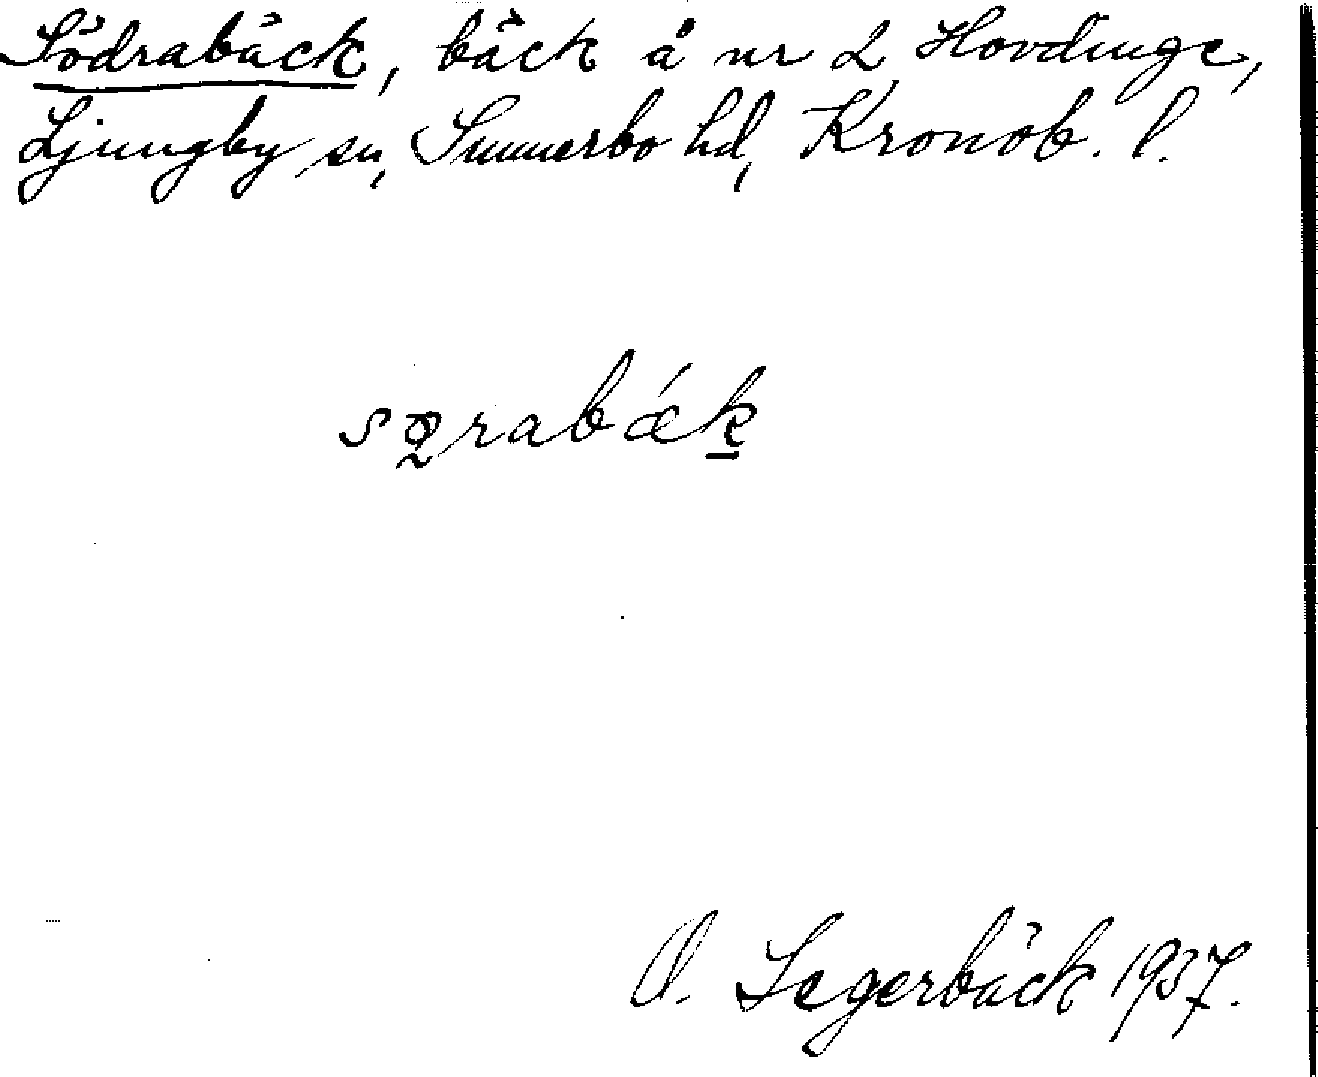 Södrabäck, bäck å nr 2 Hovdinge,
Ljungby sn, Sunnerbo hd, Kronob. l.
sø̰rabǽk̠
O. Segerbäck 1937.